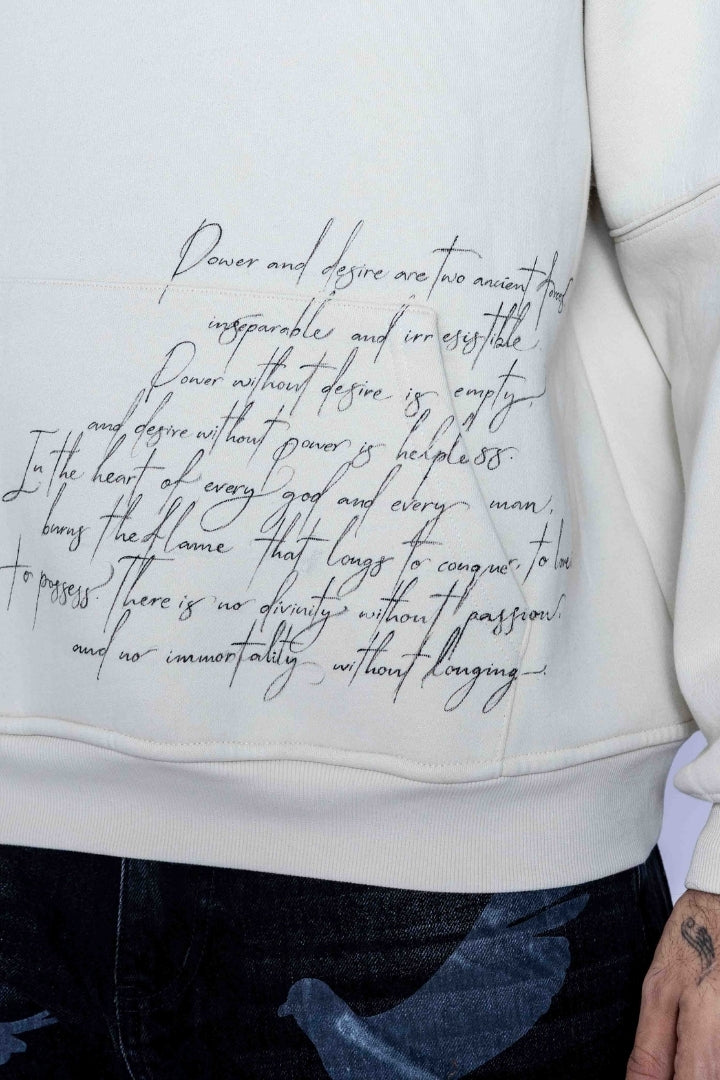 Power and desire are two ancient forces
inseparable and irresistible.
Power without desire is empty,
and desire without power is helpless.
In the heart of every god and every man,
burns the flame that longs to conquer, to love
to possess. There is no divinity without passion,
and no immortality without longing.